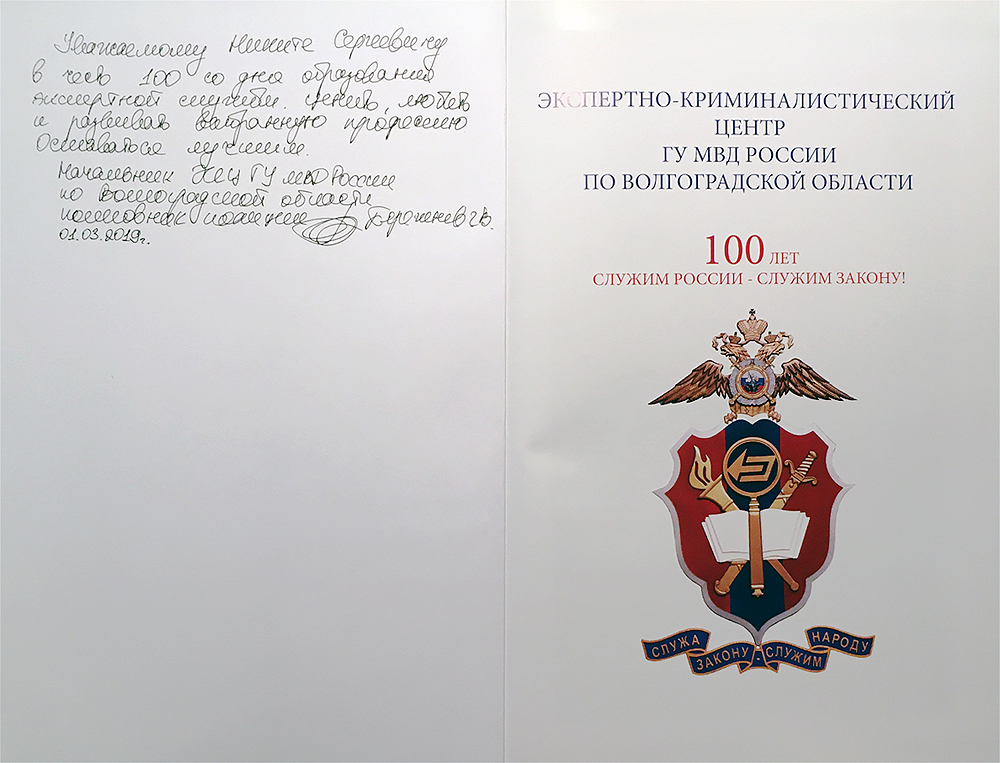 Уважаемому Никите Сергеевичу
в честь 100 со дня образования
экспертной службы. Ценить, любить
и развивать выбранную профессию
Оставаться лучшим.
Начальник ЭКЦ ГУ МВД России
по Волгоградской области
полковник полиции
01.03.2019г.
ЭКСПЕРТНО-КРИМИНАЛИСТИЧЕСКИЙ
ЦЕНТР
ГУ МВД РОССИИ
ПО ВОЛГОГРАДСКОЙ ОБЛАСТИ
100 ЛЕТ
СЛУЖИМ РОССИИ - СЛУЖИМ ЗАКОНУ!
СЛУЖА ЗАКОНУ - СЛУЖИМ НАРОДУ